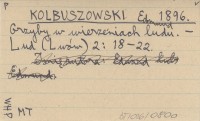 KOLBUSZOWSKI Edmund 1896.
Grzyby w wierzeniach ludu. –
Lud (Lwów) 2: 18-22.
Edmund
WHP
MT